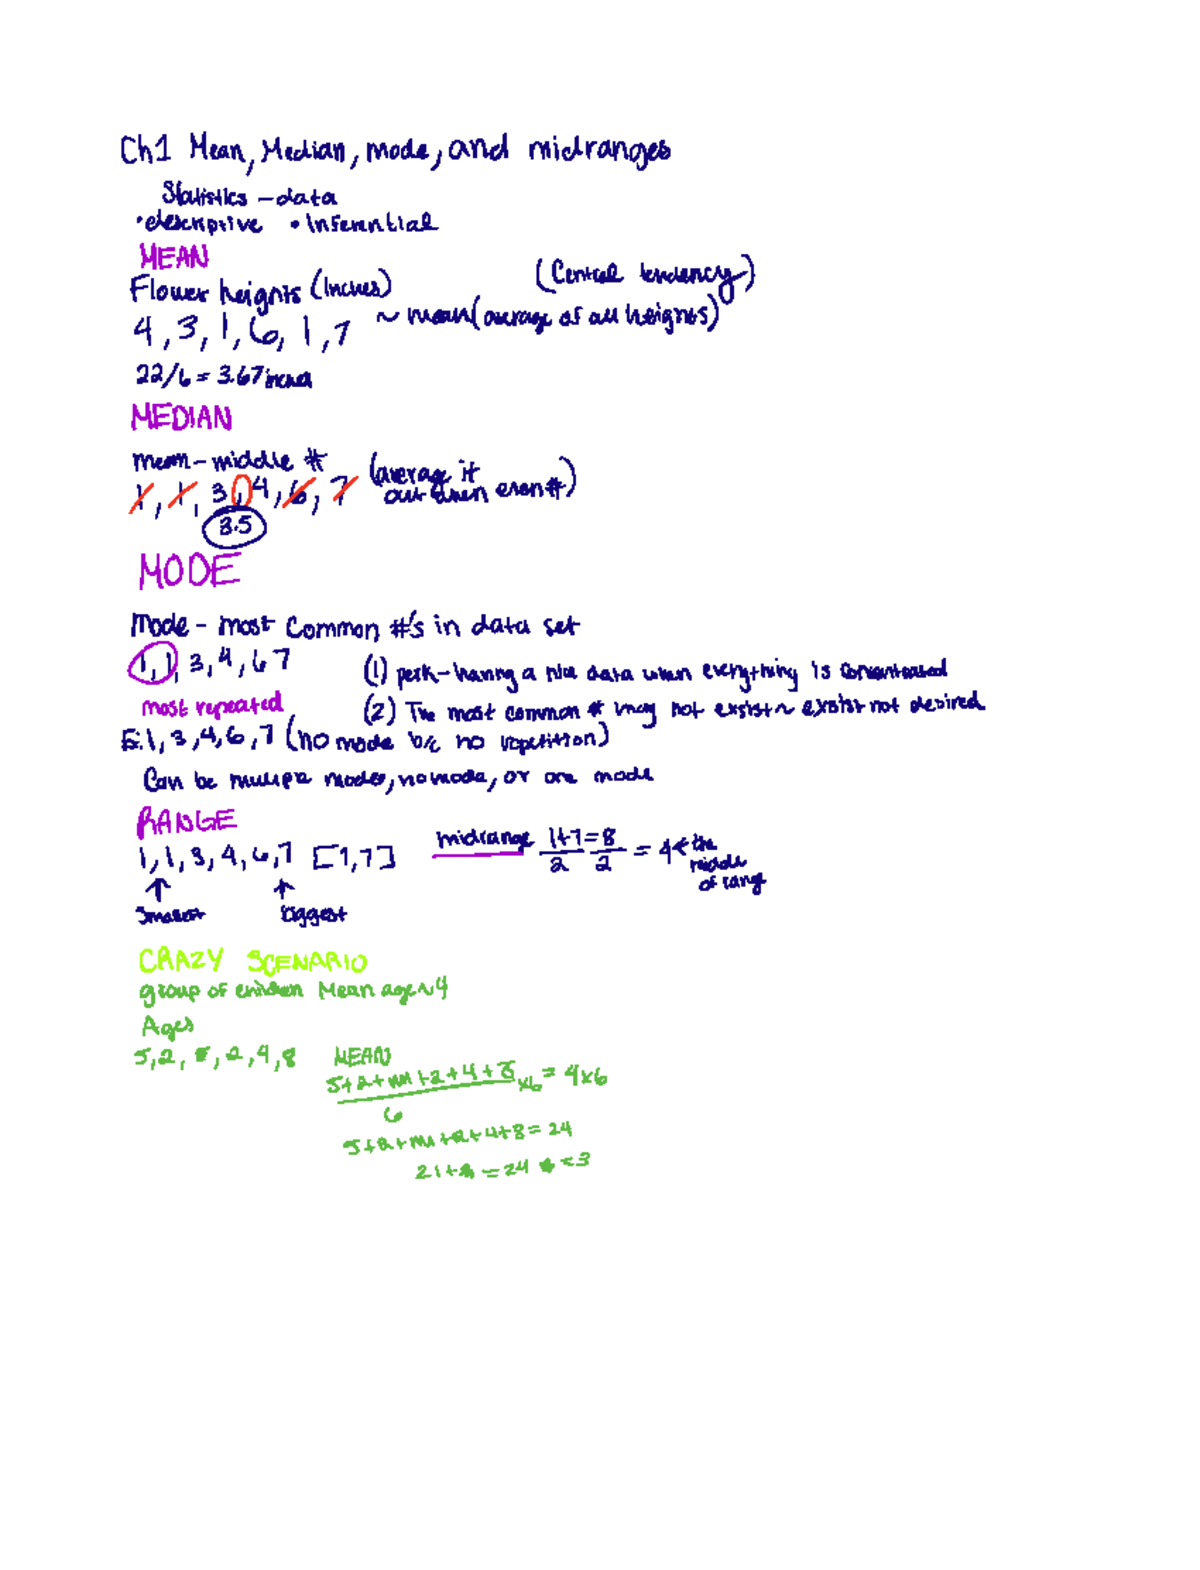 Ch1 Mean, Median, mode, and midranges
Statistics - data
• descriptive • Inferential
MEAN
(Central tendency)
Flower heights (Inches)
4, 3, 1, 6, 1, 7 ~ mean (average of all heights)
22/6 = 3.67 inches
MEDIAN
mean - middle #
1, 1, 3, 4, 6, 7 (average it out when even #)
3.5
MODE
Mode - most common #'s in data set
1, 1, 3, 4, 6 7 (1) perk - having a nice data when everything is concentrated
most repeated (2) The most common # may not exsist ~ exsist not desired
E: 1, 3, 4, 6, 7 (no mode b/c no repetition)
Can be multiple modes, no mode, or one mode
RANGE
1, 1, 3, 4, 6, 7 [1, 7] midrange 1+7/2 = 8/2 = 4 ← the middle of range
↑ ↑
Smallest biggest
CRAZY SCENARIO
group of children Mean age ~ 4
Ages
5, 2, , 2, 4, 8 MEAN
5+2+ +2+4+8/6 ×6 = 4×6
5+2+ +2+4+8 = 24
21+ = 24 = 3